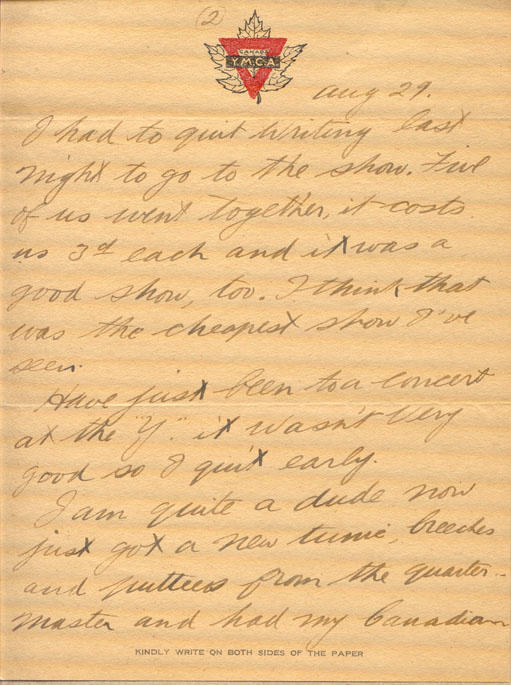 (2)
CANADA
Y.M.C.A
Aug 29.
I had to quit writing last
night to go to the show. Five
of us went together, it costs
us 3d each and it was a
good show, too. I think that
was the cheapest show I've
seen.
Have just been to a concert
at the "Y". it wasn't very
good so I quit early.
I am quite a dude now
just got a new tunic, breeches
and puttees from the quarter-
master and had my Canadian
KINDLY WRITE ON BOTH SIDES OF THE PAPER